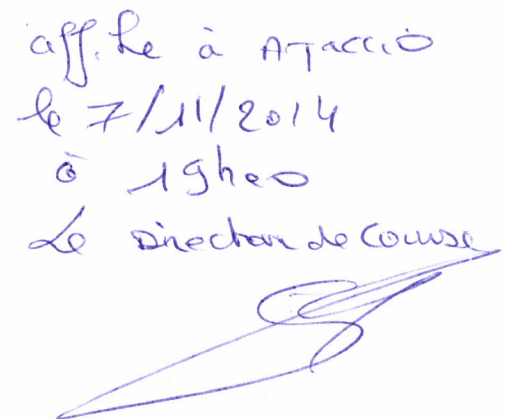 affiché à AJACCIO
le 7/11/2014
à 19h00
Le Directeur de Course